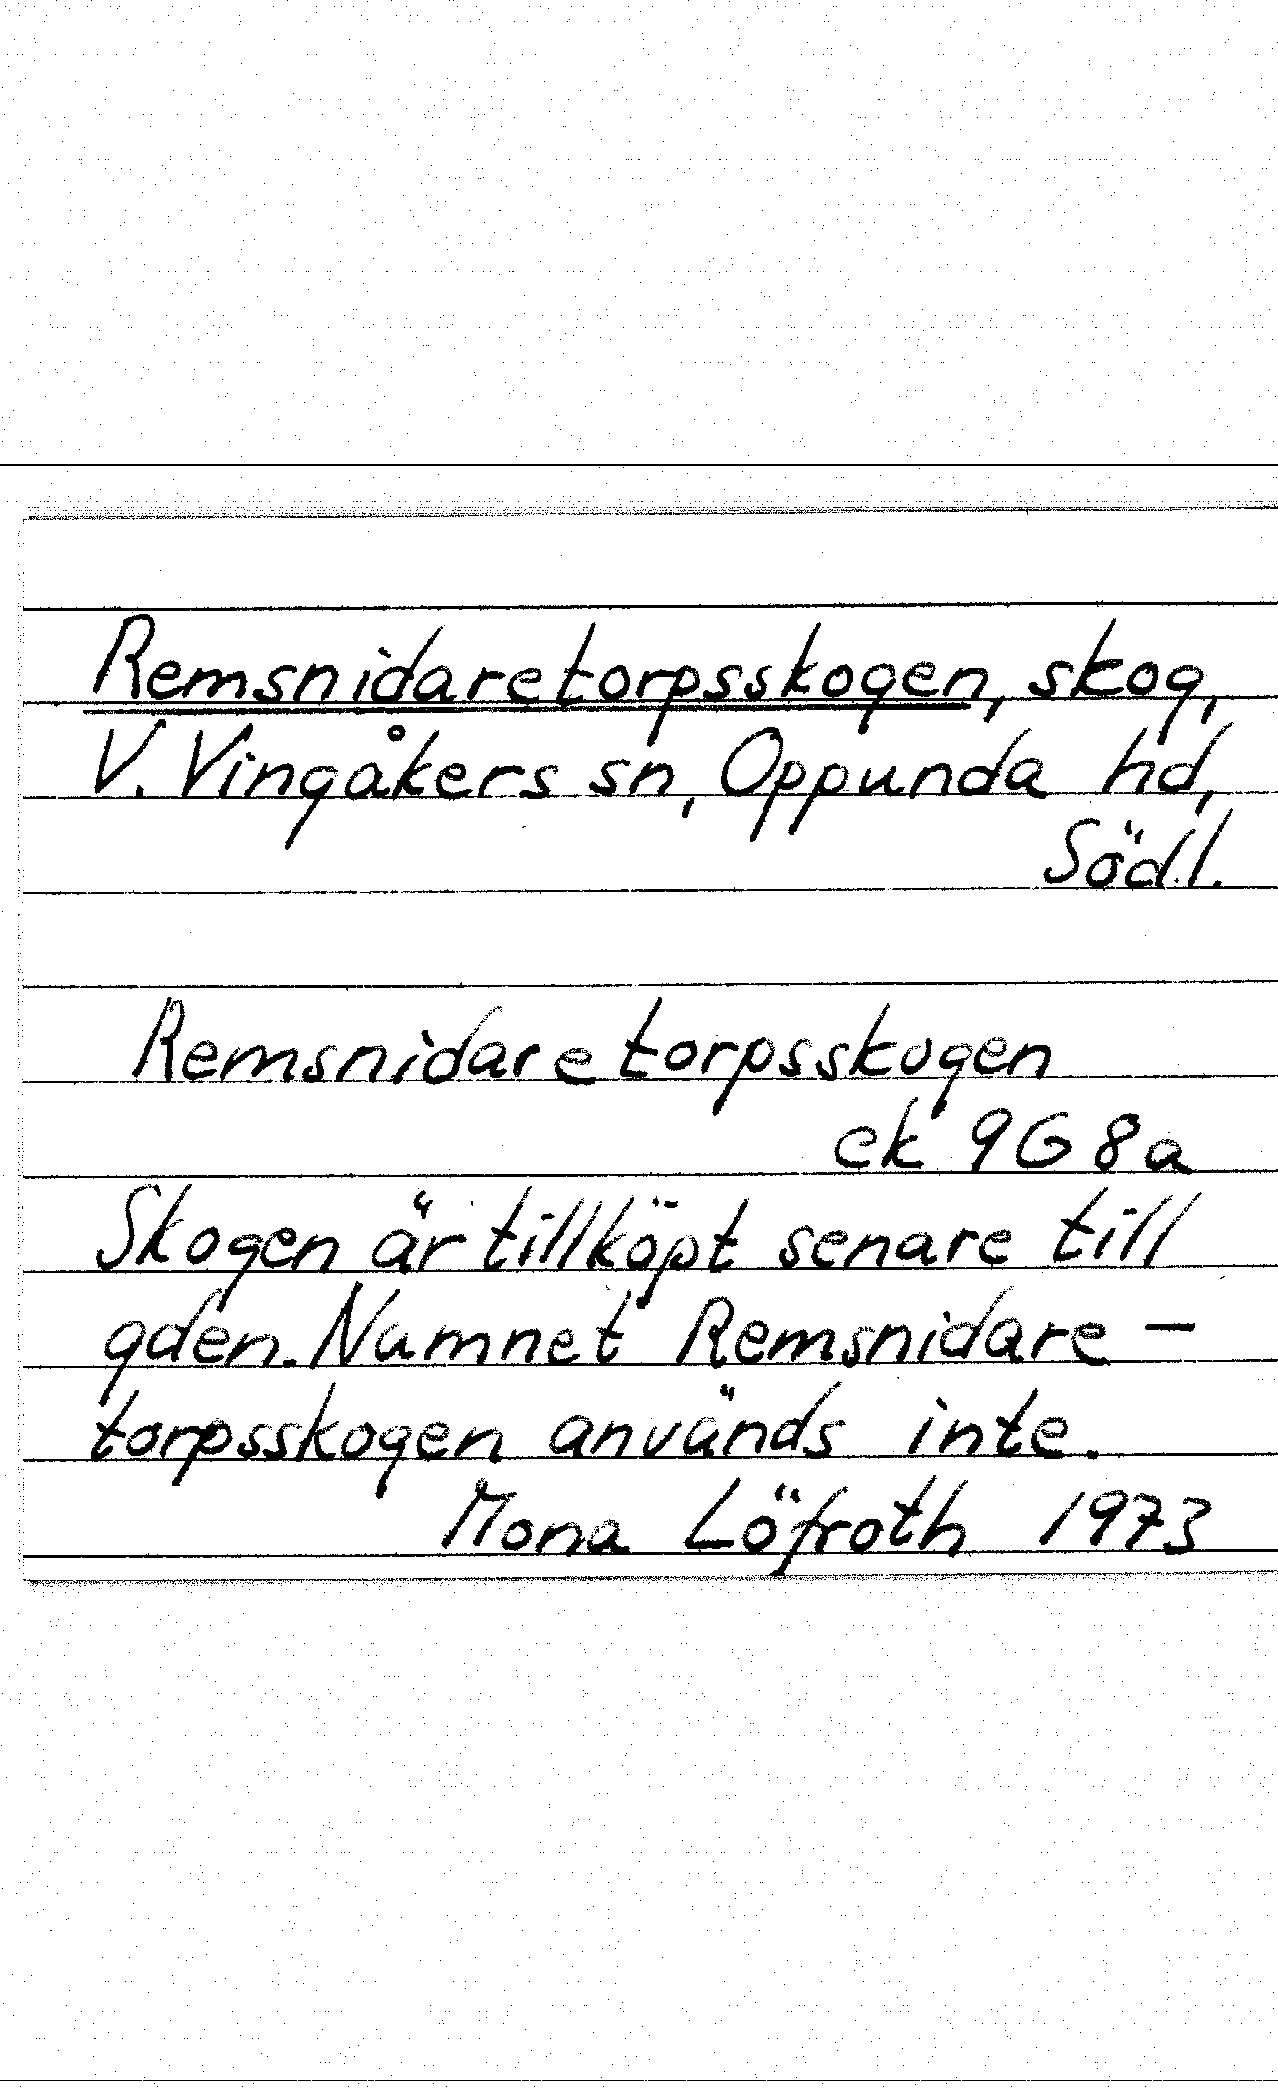 Remsnidaretorpsskogen, skog,
V. Vingåkers sn, Oppunda hd,
Södl.
Remsnidaretorpsskogen
ek 9G8a
Skogen är tillköpt senare till
gden. Namnet Remsnidare-
torpsskogen används inte.
Mona Löfroth 1973